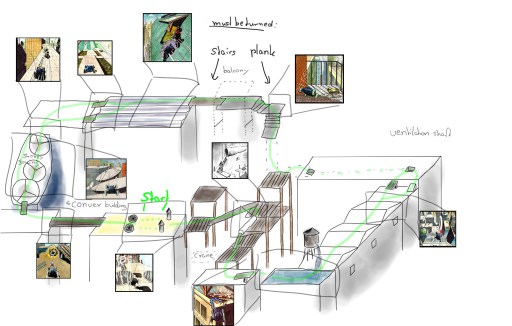 must be turned:
stairs plank
balcony
ventilation shaft
Start
conver building
crane